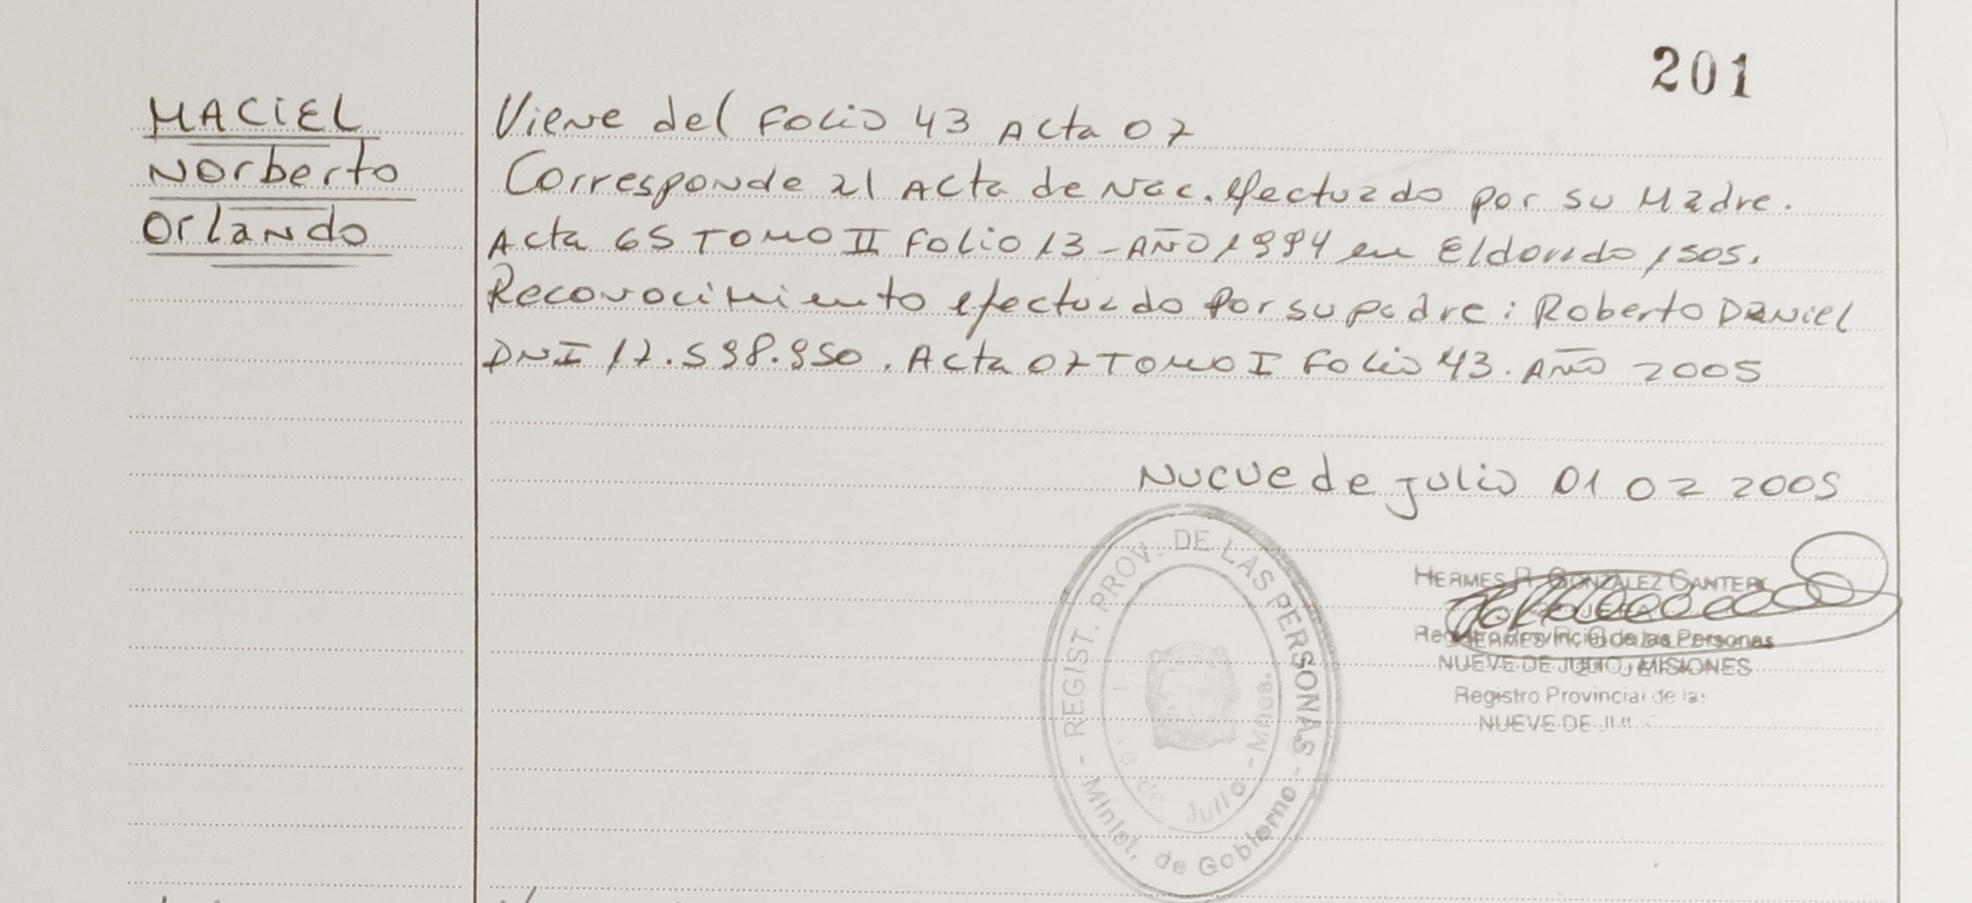 201
MACIEL
Norberto
Orlando
Viene del Folio 43 Acta 07
Corresponde al Acta de Nac. efectuado por su Madre.
Acta 65 TOMO II Folio 13 - AÑO 1994 en Eldorado
Reconocimiento efectuado por su padre: Roberto Daniel
DNI 17.598.950. Acta 07 TOMO I Folio 43. AÑO 2005
Nueve de julio 01 02 2005
- REGIST. PROV. DE LAS PERSONAS -
Minist. de Gobierno
de Julio - Mnes.
HERMES R. GONZALEZ CANTERO
Registro Provincial de las Personas
NUEVE DE JULIO, MISIONES
Registro Provincial de las
NUEVE DE JUL